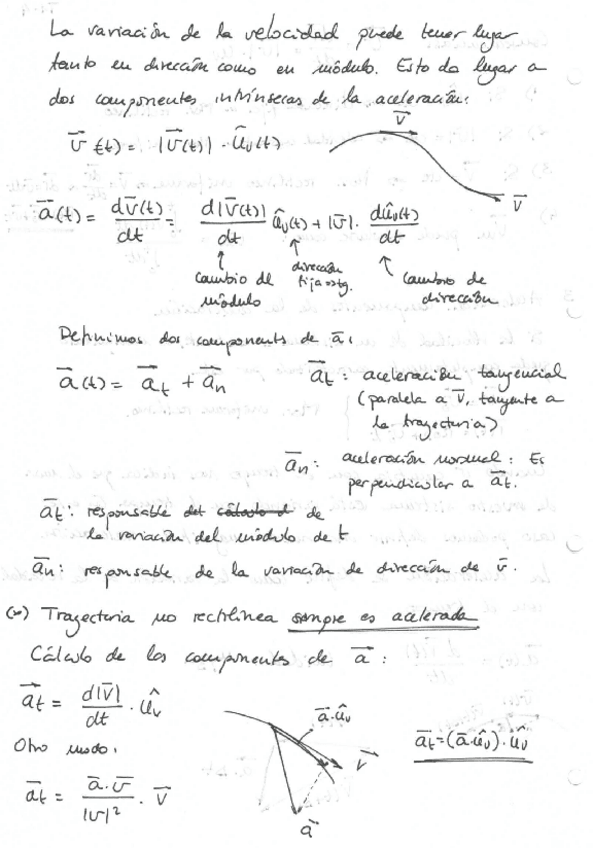 La variación de la velocidad puede tener lugar
tanto en dirección como en módulo. Esto da lugar a
dos componentes intrínsecas de la aceleración:
v⃗(t) = |v⃗(t)| · û_v(t)
v⃗
v⃗
a⃗(t) = dv⃗(t)/dt = d|v⃗(t)|/dt û_v(t) + |v⃗| · dû_v(t)/dt
cambio de módulo
dirección fija
cambio de dirección
Definimos dos components de a⃗:
a⃗(t) = a⃗t + a⃗n
a⃗t: aceleración tangencial
(paralela a v⃗, tangente a
la trayectoria)
a⃗n: aceleración normal: Es
perpendicular a a⃗t.
a⃗t: responsable de
la variación del módulo de t
a⃗n: responsable de la variación de dirección de v⃗.
(*) Trayectoria no rectilínea siempre es acelerada
Cálculo de los componentes de a⃗:
a⃗t = d|v⃗|/dt · û_v
a⃗·û_v
v⃗
a⃗
a⃗t = (a⃗·û_v)·û_v
Otro modo:
a⃗t = a⃗·v⃗/|v|² · v⃗